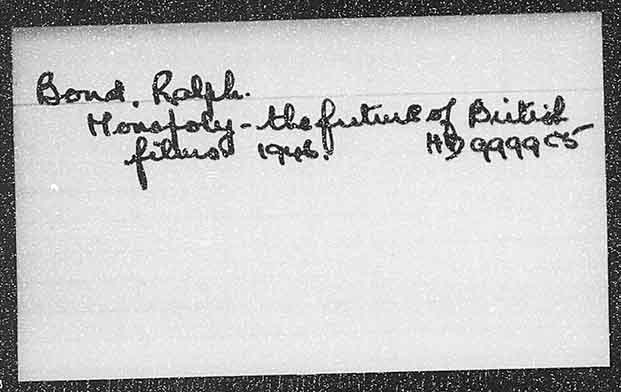 Bond, Ralph.
Monopoly - the future of British
films 1946. HD 9999 C5